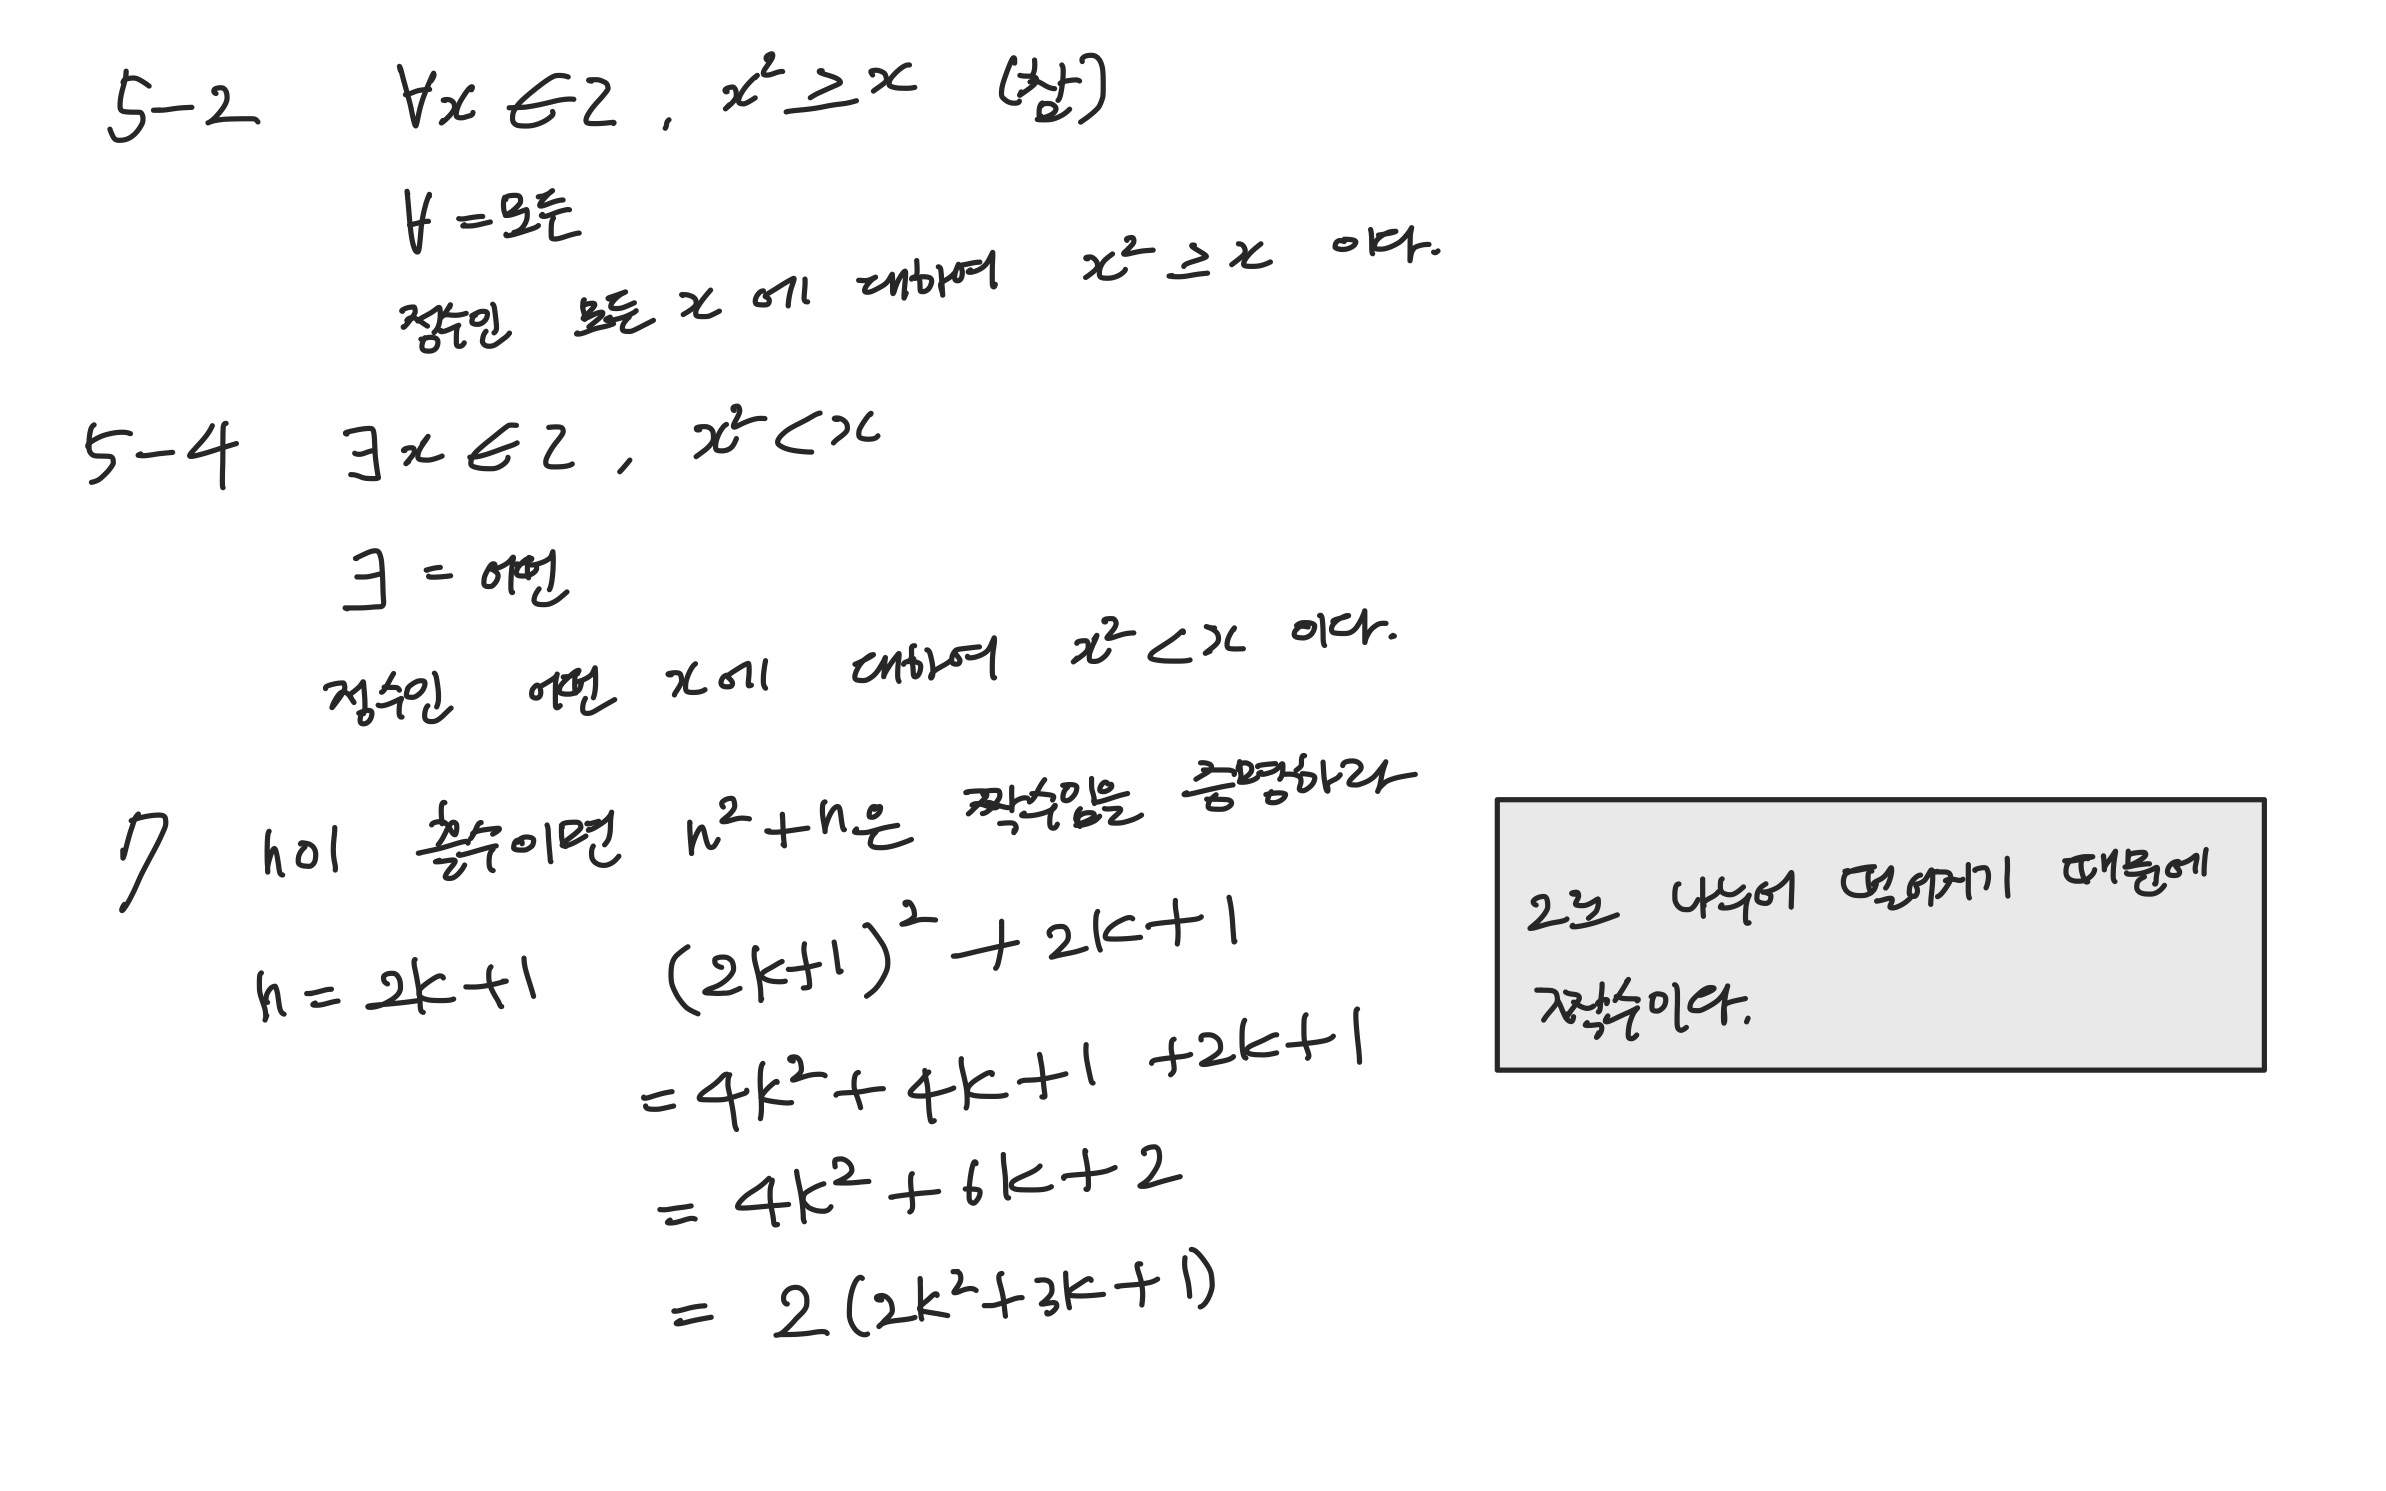 5-2 ∀x ∈ Z , x² ≥ x (참)
∀ = 모든
정수인 모든 x에 대하여 x² ≥ x 이다.
5-4 ∃x ∈ Z , x² < x
∃ = 어떤
정수인 어떤 x에 대하여 x² < x 이다.
7 n이 홀수이면 n²+n은 짝수임을 증명하라
n = 2k+1 (2k+1)² + 2k+1
= 4k² + 4k+1 +2k+1
= 4k² + 6k + 2
= 2(2k²+3k+1)
2로 나누어 떨어지기 때문에
짝수이다.